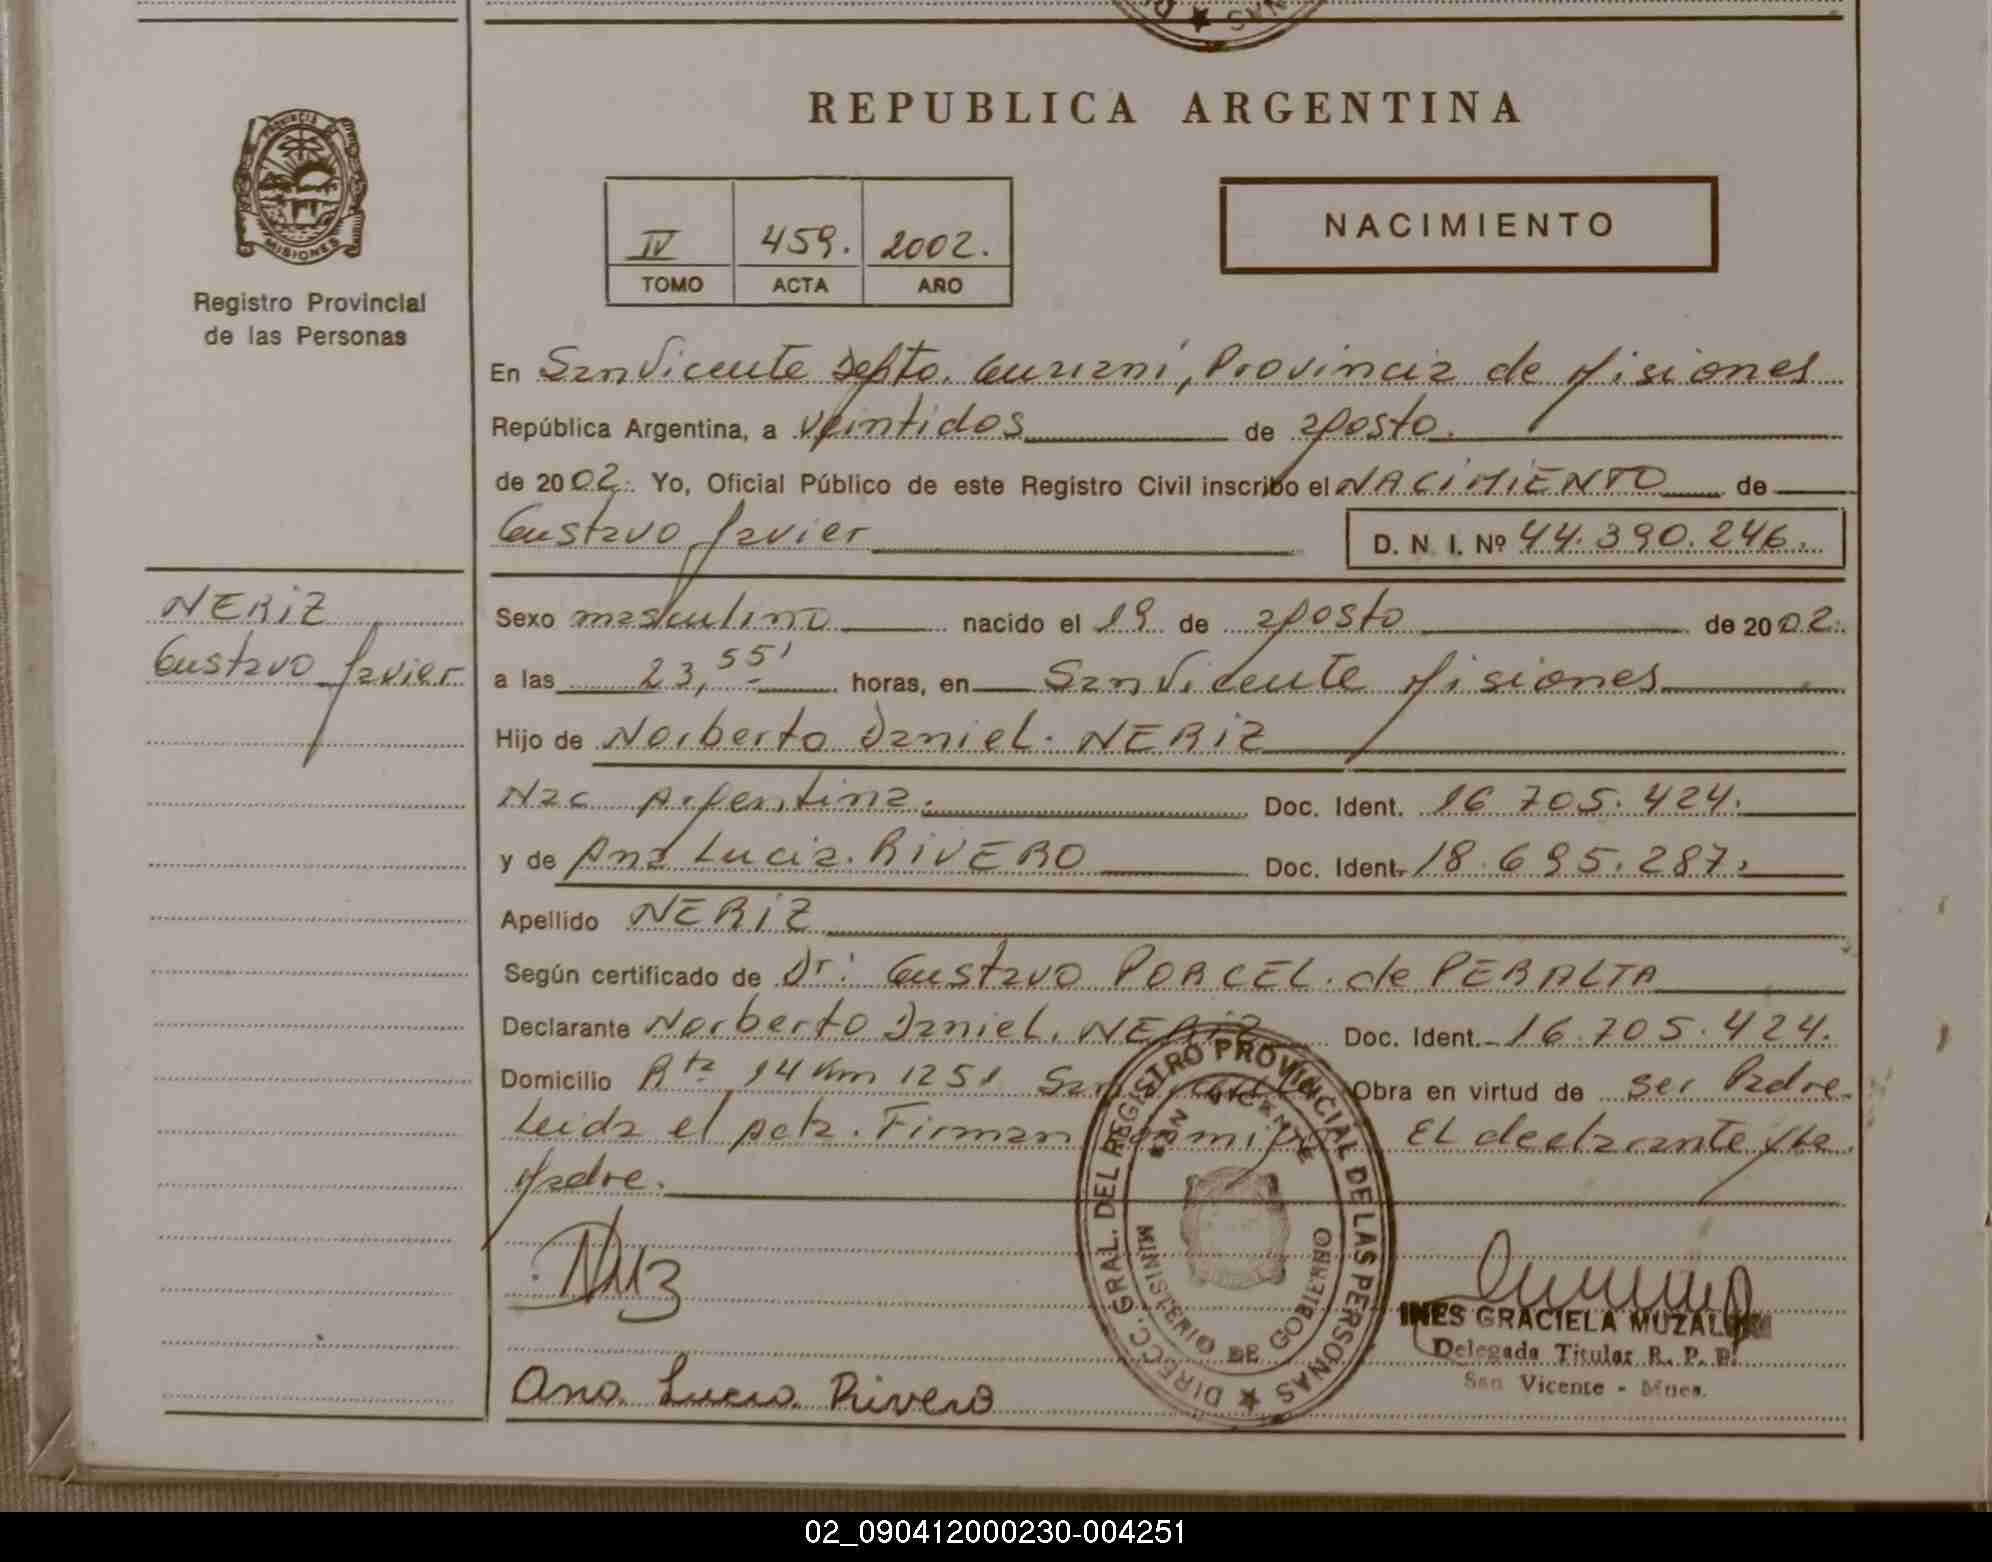 REPUBLICA ARGENTINA
PROVINCIA DE
MISIONES
Registro Provincial
de las Personas
IV 459. 2002.
TOMO ACTA AÑO
NACIMIENTO
En San Vicente Depto. Guarani, Provincia de Misiones
República Argentina, a veintidos de agosto.
de 2002. Yo, Oficial Público de este Registro Civil inscribo el NACIMIENTO de
Gustavo Javier D. N. I. Nº 44.390.246.
NERIZ
Gustavo Javier
Sexo masculino nacido el 19 de agosto de 2002.
a las 23,55' horas, en San Vicente Misiones
Hijo de Norberto Daniel. NERIZ
Nac Argentina. Doc. Ident. 16.705.424.
y de Ana Lucia. RIVERO Doc. Ident. 18.695.287.
Apellido NERIZ
Según certificado de Dr: Gustavo PORCEL. de PERALTA
Declarante Norberto Daniel. NERIZ Doc. Ident. 16.705.424.
Domicilio Rta 14 Km 1251 San Vicente Obra en virtud de ser Padre.
Leida el acta. Firman conmigo EL declarante y la
Madre.
DIRECC. GRAL. DEL REGISTRO PROVINCIAL DE LAS PERSONAS
SAN VICENTE
MINISTERIO DE GOBIERNO
INES GRACIELA
Delegada Titular R. P. P.
San Vicente - Mnes.
Ana Lucia Rivero
02_090412000230-004251